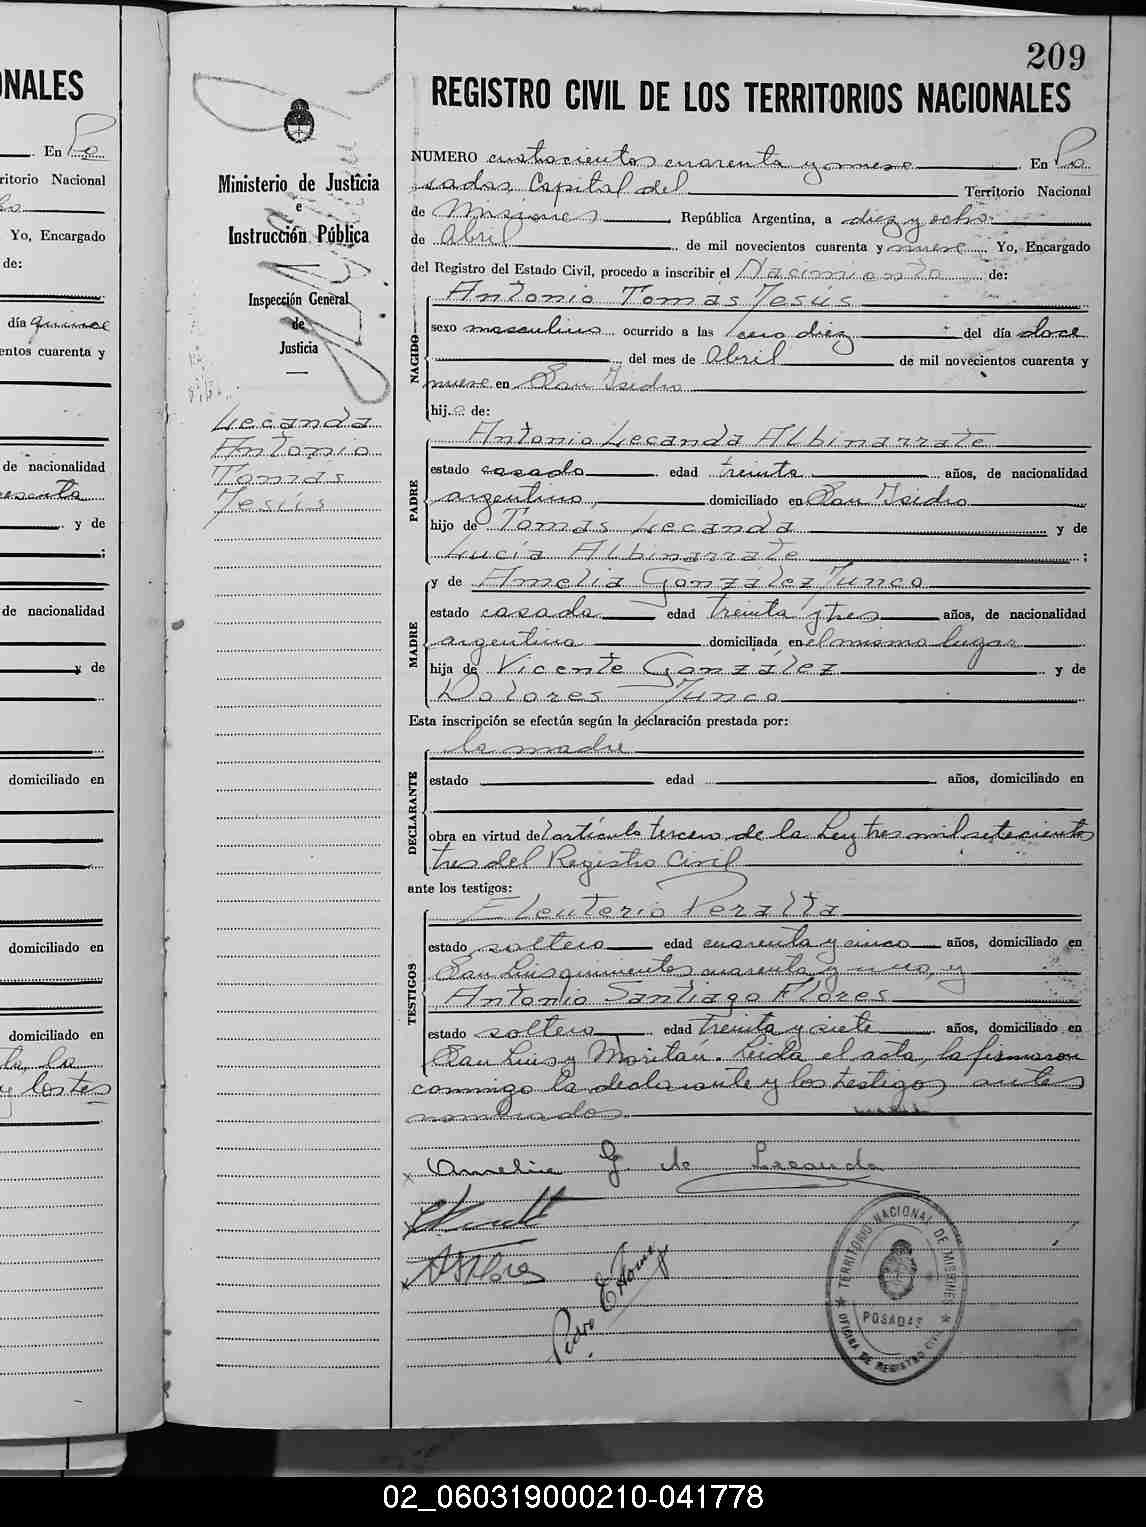 209
ONALES
En Po
ritorio Nacional
Yo, Encargado
de:
día quince
entos cuarenta y
de nacionalidad
y de
;
de nacionalidad
y de
domiciliado en
domiciliado en
domiciliado en
y los tes
Ministerio de Justicia
e
Instrucción Pública
Inspección General
de
Justicia
Lecanda
Antonio
Tomás
Jesús
REGISTRO CIVIL DE LOS TERRITORIOS NACIONALES
NUMERO cuatrocientos cuarenta y nueve En Po
sadas, Capital del Territorio Nacional
de Misiones, República Argentina, a diez y ocho
de Abril de mil novecientos cuarenta y nueve Yo, Encargado
del Registro del Estado Civil, procedo a inscribir el Nacimiento de:
NACIDO
Antonio Tomás Jesús
sexo masculino ocurrido a las cero diez del día doce
del mes de Abril de mil novecientos cuarenta y
nueve en San Isidro
hijo de:
PADRE
Antonio Lecanda Albinarrate
estado casado edad treinta años, de nacionalidad
argentino, domiciliado en San Isidro
hijo de Tomás Lecanda y de
Lucía Albinarrate ;
MADRE
y de Amelia González Junco
estado casada edad treinta y tres años, de nacionalidad
argentina domiciliada en el mismo lugar
hija de Vicente González y de
Dolores Junco
Esta inscripción se efectúa según la declaración prestada por:
DECLARANTE
la madre
estado edad años, domiciliado en
obra en virtud del artículo tercero de la Ley tres mil setecientos
tres del Registro Civil
ante los testigos:
TESTIGOS
Eleuterio Peralta
estado soltero edad cuarenta y cinco años, domiciliado en
San Luis quinientos cuarenta y uno, y
Antonio Santiago Flores
estado soltero edad treinta y siete años, domiciliado en
San Luis y Moritán. Leída el acta, la firmaron
conmigo la declarante y los testigos antes
nombrados
Amelia G. de Lecanda
ASFlores
TERRITORIO NACIONAL DE MISIONES
POSADAS
OFICINA DE REGISTRO CIVIL
02_060319000210-041778